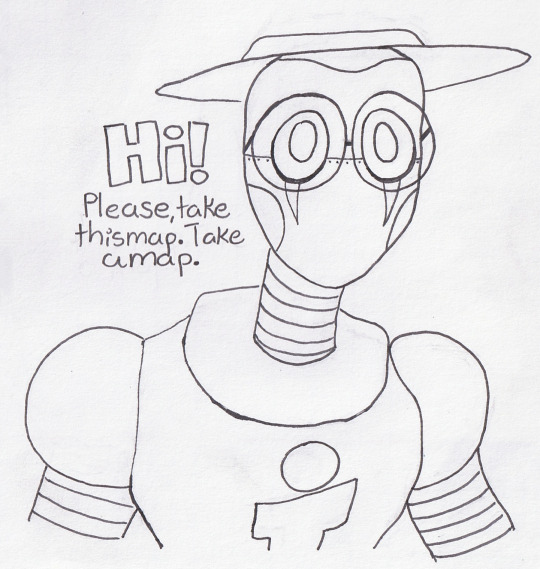 Hi!
Please, take
this map. Take
a map.